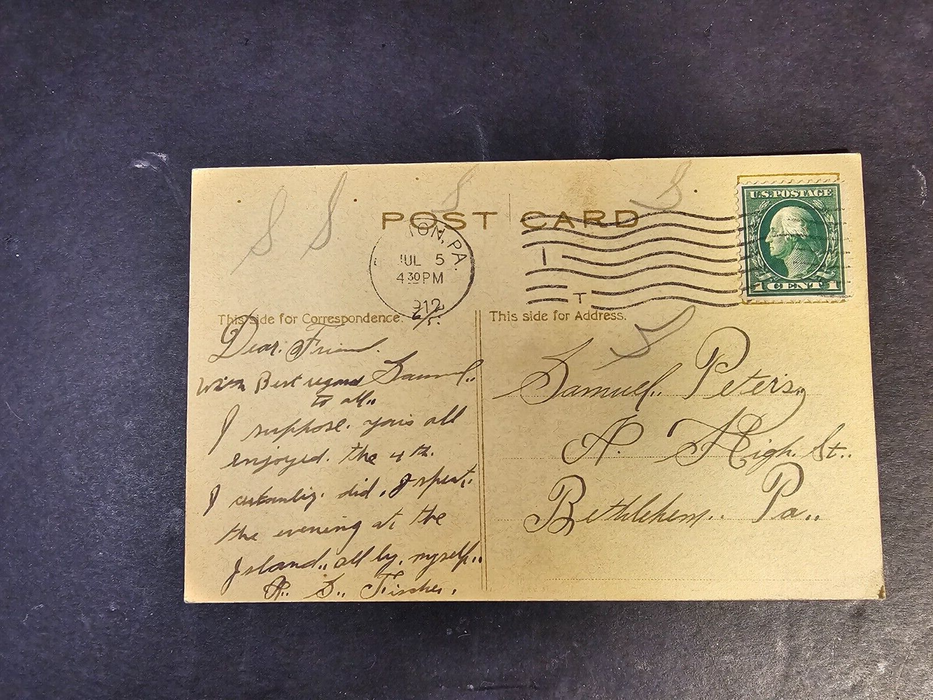 POST CARD
U.S. POSTAGE
1 CENT 1
ON, PA.
JUL 5
4 30 PM
1912
T
This side for Correspondence.
This side for Address.
Dear. Friend.
With Best regard Samuel..
to all..
I suppose. yous all
enjoyed. the 4th.
I certainly. did. I spent.
the evening at the
Island.. all by. myself..
A.. S.. Fischer.
Samuel.. Peters..
N. High. St..
Bethlehem.. Pa..